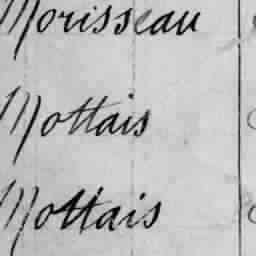 Morisseau
Mottais
Mottais